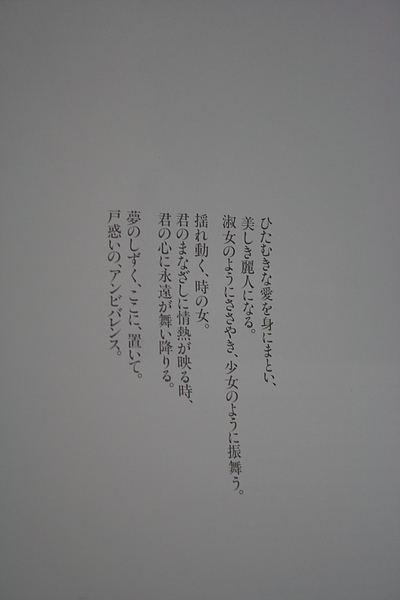 ひたむきな愛を身にまとい、
美しき麗人になる。
淑女のようにささやき、少女のように振舞う。
揺れ動く、時の女。
君のまなざしに情熱が映る時、
君の心に永遠が舞い降りる。
夢のしずく、ここに、置いて。
戸惑いの、アンビバレンス。